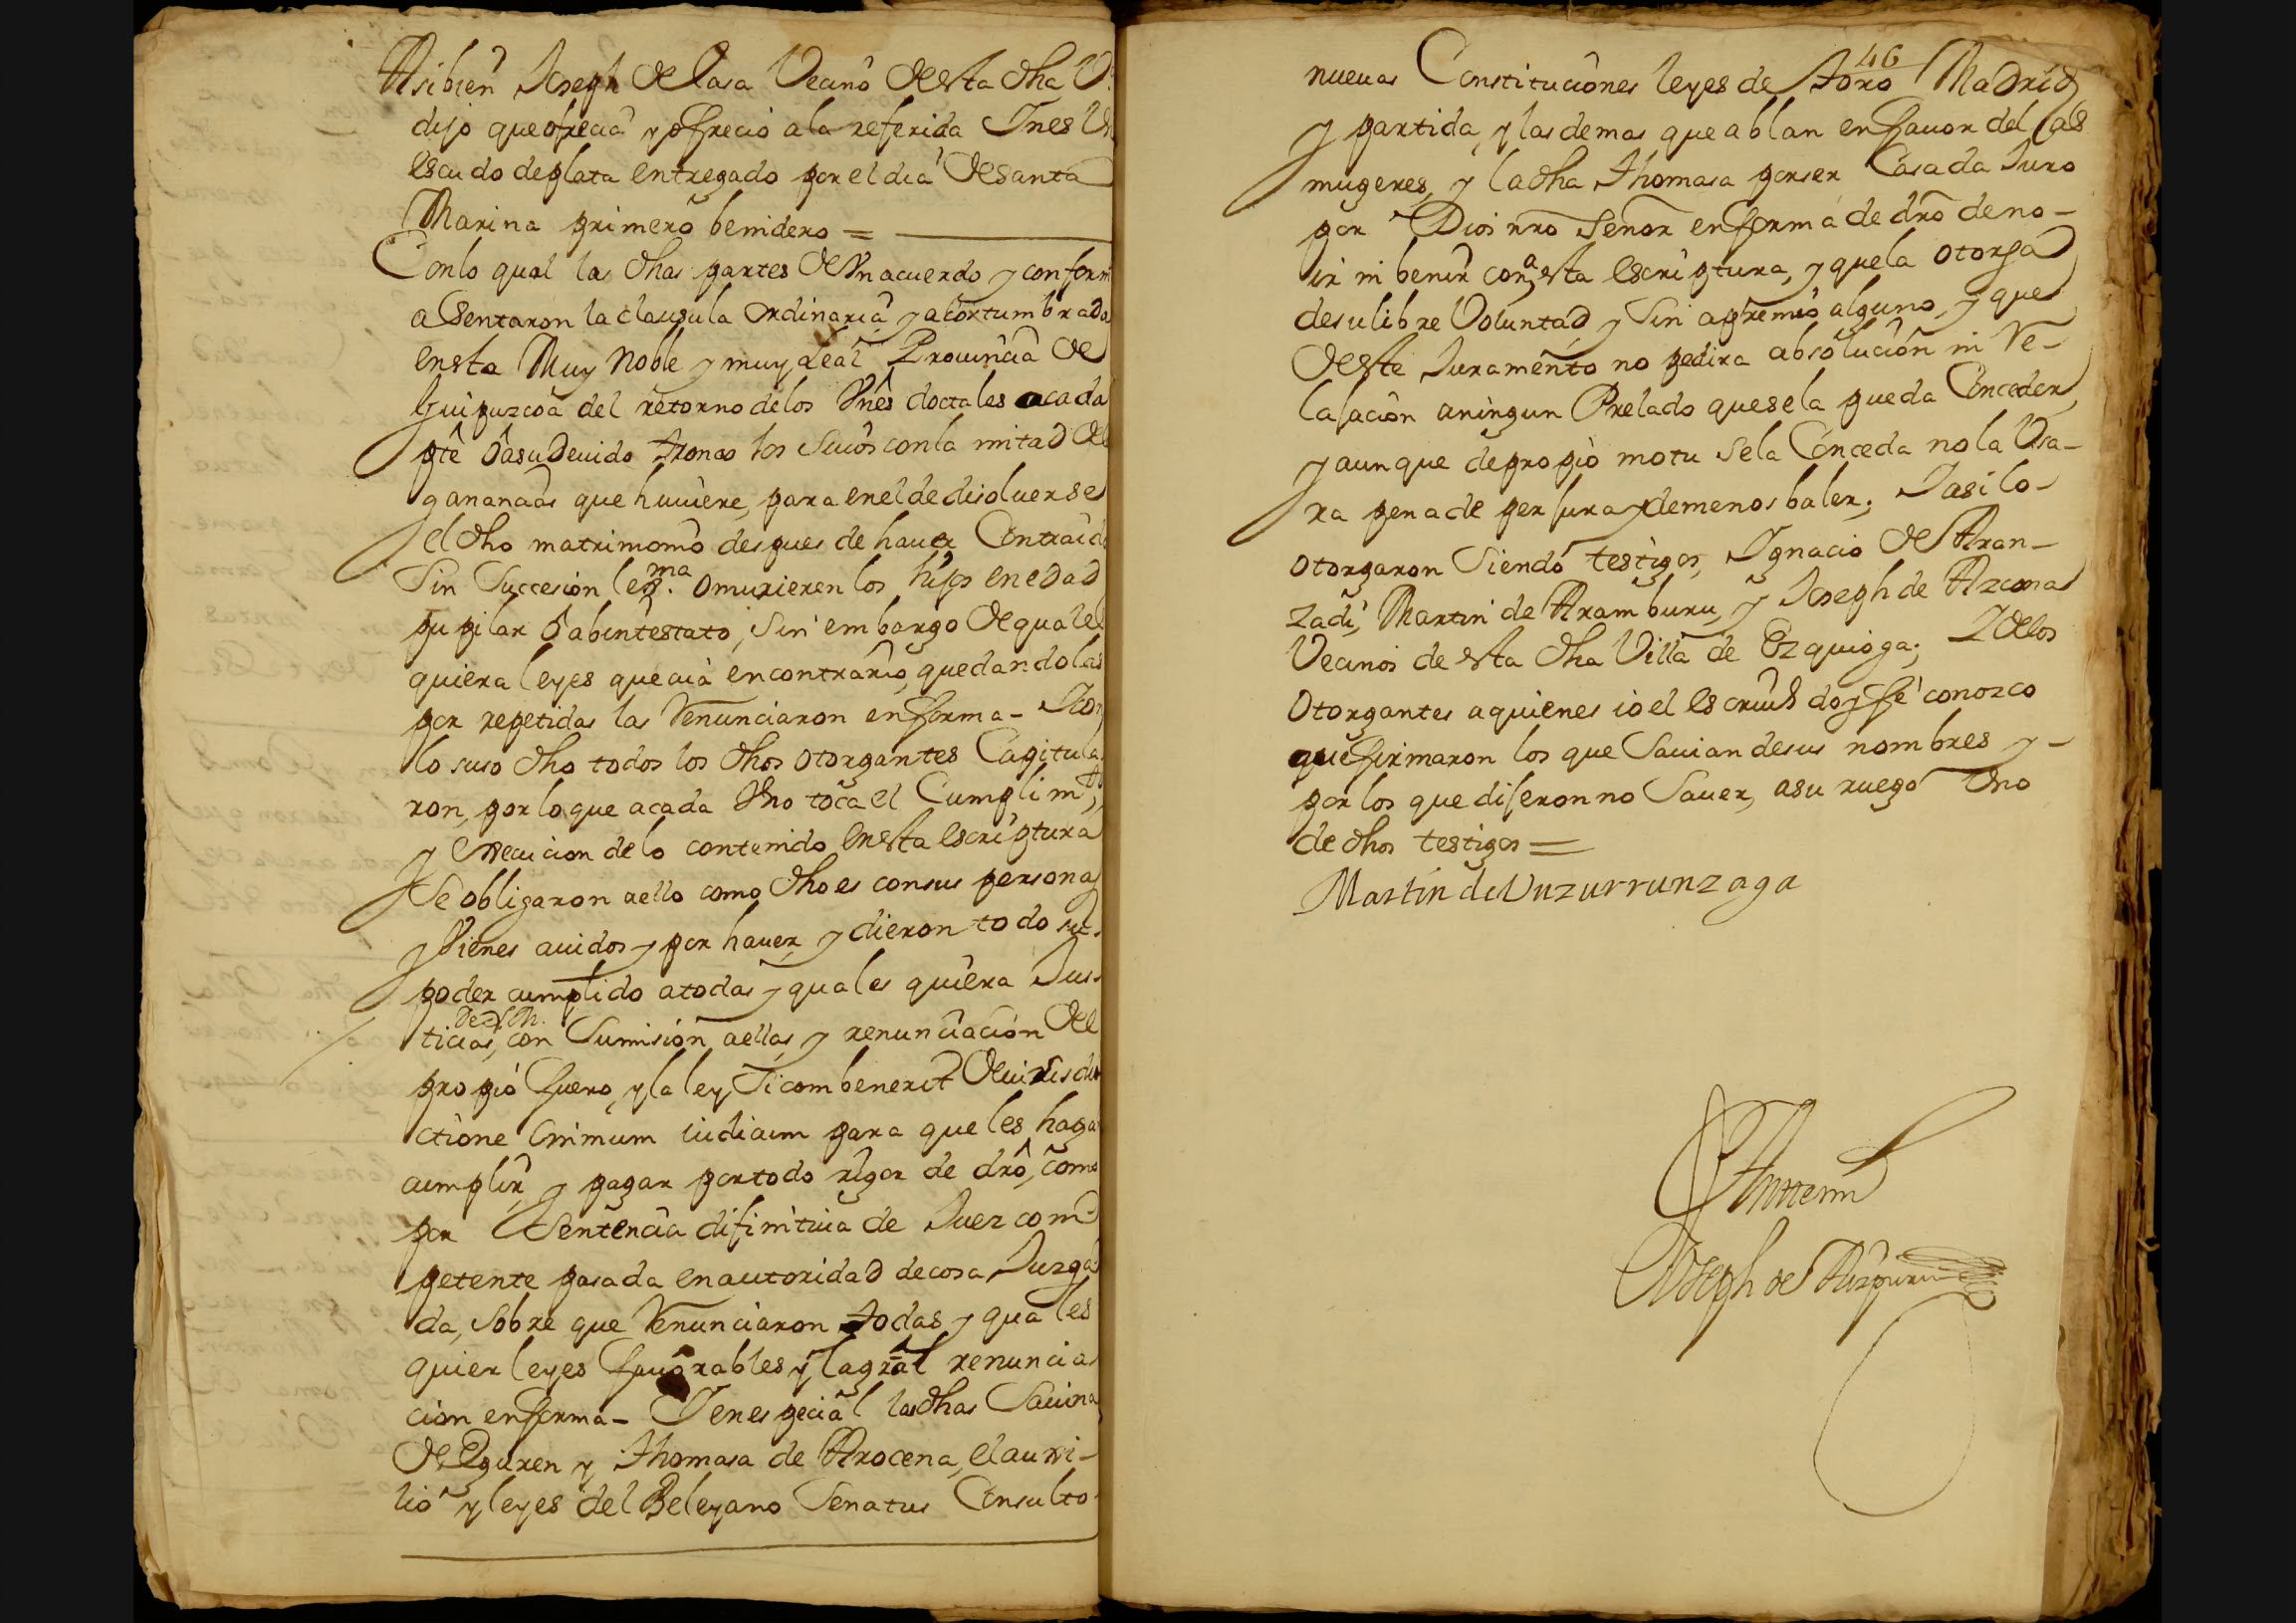 Asibien Joseph de Lasa Vecino desta dha V.ª
dijo que ofrecia y ofrecio ala referida Ines Un
escudo de plata entregado por el dia de santa
Marina primero benidero =
Conlo qual las dhas partes de Vn acuerdo y conform
asentaron la clausula ordinaria y acostumbrada
ensta Muy Noble y muy Leal Prouincia de
Guipuzcoa del retorno delos Vnes doctales acada
pte ô asu deuido tronco los suios conla mitad de
ganancias que huuiere, para enel de disoluerse
el dho matrimonio despues de hauer Contraido
Sin Succesion leg.ma o murieren los hijos en edad
pupilar ô abintestato, sin embargo de quales
quiera leyes que aia encontrario, quedandolas
por repetidas las Renunciaron enforma - Icon
lo suso dho todos los dhos otorgantes Capitula
ron, por lo que acada Vno toca el Cumplim.to
y execucion delo contenido ensta escriptura
Se obligaron aello como dho es consus personas
y Vienes auidos y por hauer, y dieron todo su
poder cumplido atodas y quales quiera Jus
ticias, con Sumision aellas y renunciacion del
propio fuero, y la ley, Sicombenerit de iurisdi
ctione Omnium iudicum para que les haga
cumplir, y pagar por todo rigor de dro, como
por Sentencia difinitiua de Juez com
petente pasada en autoridad de cosa Juzga
da, sobre que Renunciaron todas y quales
quier leyes fauorables y la gral renuncia
cion enforma - Ien especial las dhas Sauina
de Eguren y Thomasa de Arocena, el auxi-
lio y leyes del Beleyano Senatus Consulto
46
nueuas Constituciones leyes de Toro Madrid
y partida, y las demas que ablan en fauor del las
mugeres, y la dha Thomasa por ser Casada Juro
por Dios nro Señor enforma de dro de no-
ir ni benir conª esta escriptura, y que la otorga
de su libre Voluntad y Sin apremio alguno, y que
deste Juramento no pedira absolucion ni Re-
lajacion aningun Prelado que se la pueda Conceder
y aunque de propio motu sela Conceda no la Vsa-
ra pena de perjura y de menos baler; Iasi lo
otorgaron Siendo testigos, Ignacio de Aran-
zadi, Martin de Aramburu, y Joseph de Azcona
Vecinos de esta dha Villa de Ezquioga; I delos
Otorgantes aquienes io el escriu.º doy fe conozco
que firmaron los que Sauian de sus nombres y-
por los que dijeron no Sauer, asu ruego Vno
de dhos testigos =
Martin de Unzurrunzaga
Antemi
Joseph de Aizpuru